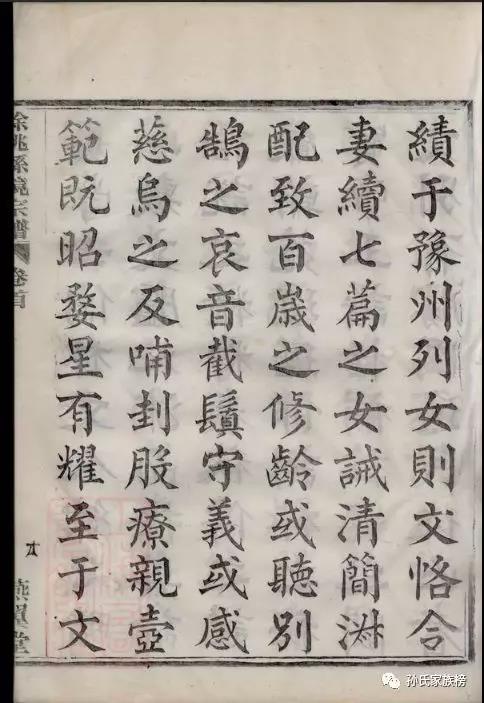 績于豫州列女則文恪令
妻續七篇之女誡清簡淑
配致百嵗之修齡或聽別
鵠之哀音截鬢守義或感
慈烏之反哺刲股療親壼
範既昭婺星有耀至于文
餘姚孫境宗譜 卷首
燕翼堂
孙氏家族榜